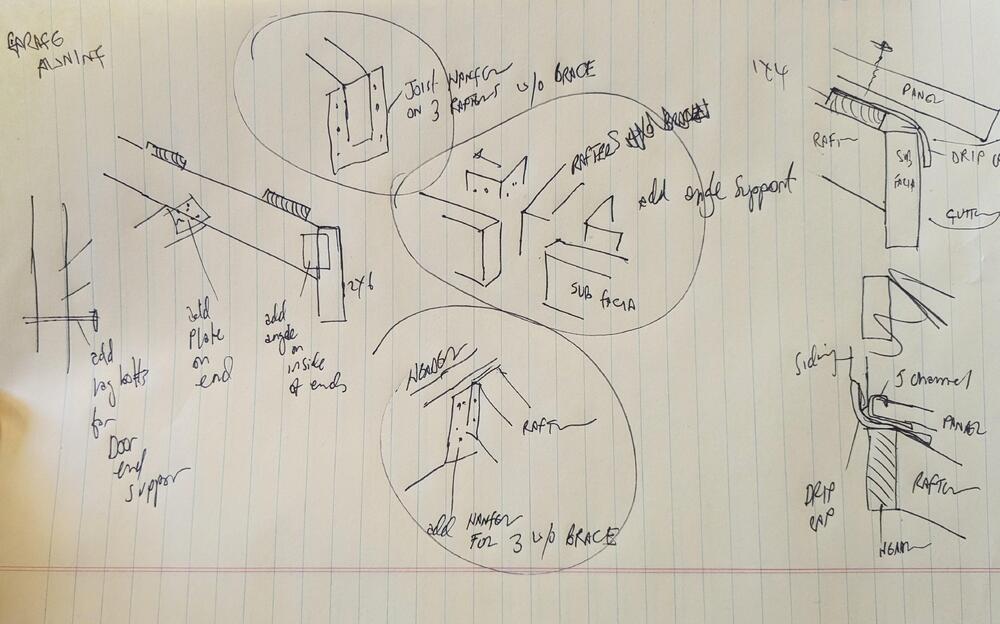 GARAGE
AWNING
JOIST HANGER
ON 3 RAFTERS W/O BRACE
RAFTERS
add angle support
SUB FACIA
2x6
add
lag bolts
for
Door
end
support
add
Plate
on
end
add
angle
on
inside
of ends
HEADER
RAFTER
add HANGER
FOR 3 W/O BRACE
1x4
PANEL
RAFTER
SUB
FACIA
DRIP
GUTTER
Siding
J channel
PANEL
RAFTER
DRIP
CAP
HEADER